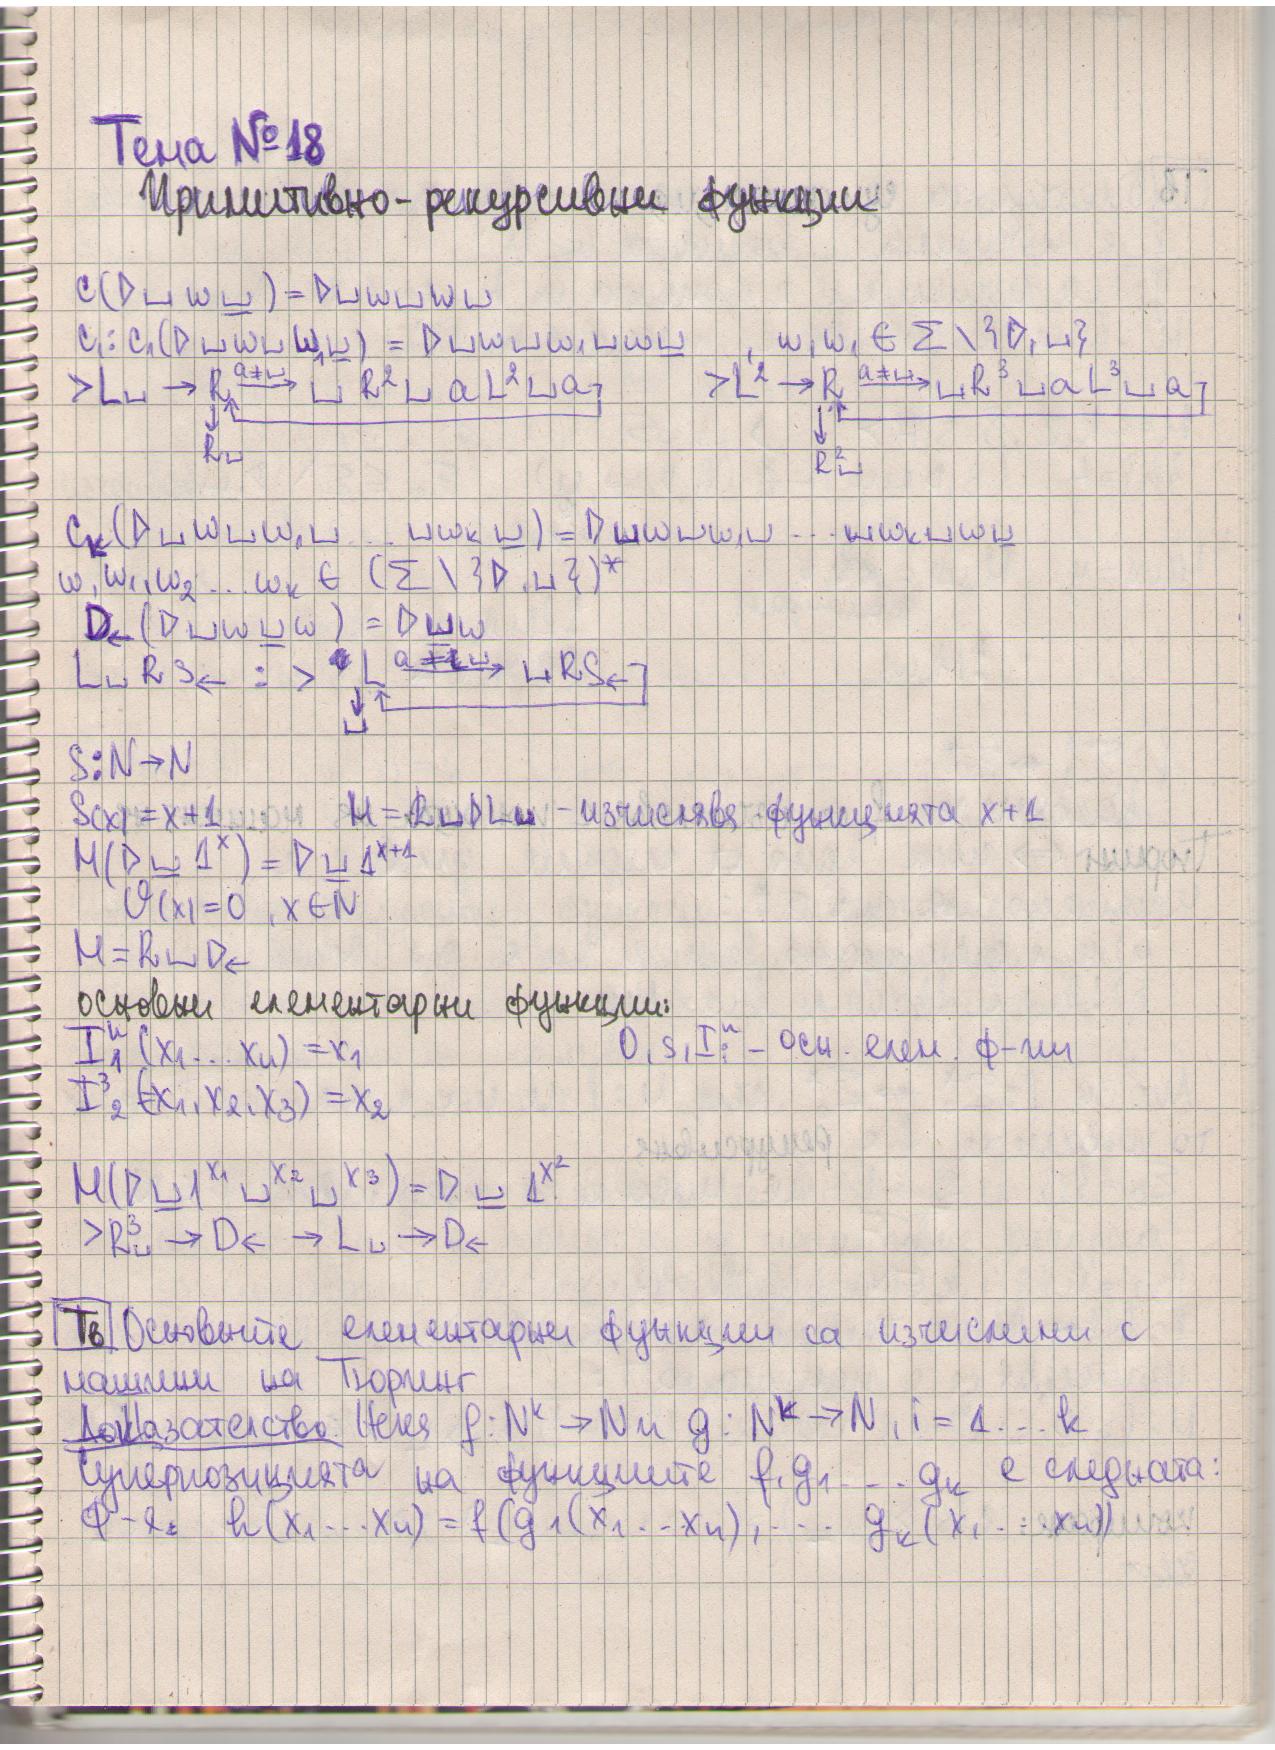 Тема №18
Примитивно-рекурсивни функции
C(D⊔w⊔) = D⊔w⊔w⊔
C₁: C₁(D⊔w⊔w₁⊔) = D⊔w⊔w₁⊔w⊔ , w,w₁ ∈ Σ\{D,⊔}
>L⊔ → R a≠⊔ → ⊔R²⊔aL²⊔a >L² → R a≠⊔ → ⊔R³⊔aL³⊔a
↓ R⊔ ↓ R²⊔
Cₖ(D⊔w⊔w₁⊔...⊔wₖ⊔) = D⊔w⊔w₁⊔...⊔wₖ⊔w⊔
w,w₁,w₂...wₖ ∈ (Σ\{D,⊔})*
D←(D⊔w⊔w) = D⊔w
L⊔RS← : > L a≠⊔ → ⊔RS←
↓ ⊔
S:N→N
S(x)=x+1 M=R⊔1L⊔ - изчислява функцията x+1
M(D⊔1ˣ) = D⊔1ˣ⁺¹
O(x)=0, x∈N
M=R⊔D←
основни елементарни функции:
I₁ⁿ(x₁...xₙ)=x₁ O,S,Iᵢⁿ - осн. елем. ф-ии
I³₂(x₁,x₂,x₃)=x₂
M(D⊔1^x₁⊔^x₂⊔^x₃) = D⊔1^x₂
>R³⊔ → D← → L⊔ → D←
Тв Основните елементарни функции са изчислими с
машини на Тюринг
Доказателство: Нека f:Nᵏ→N и g:Nᵏ→N, i=1...k
Суперпозицията на функциите f,g₁...gₖ е следната:
ф-я: h(x₁...xₙ)=f(g₁(x₁...xₙ),... gₖ(x₁...xₙ))